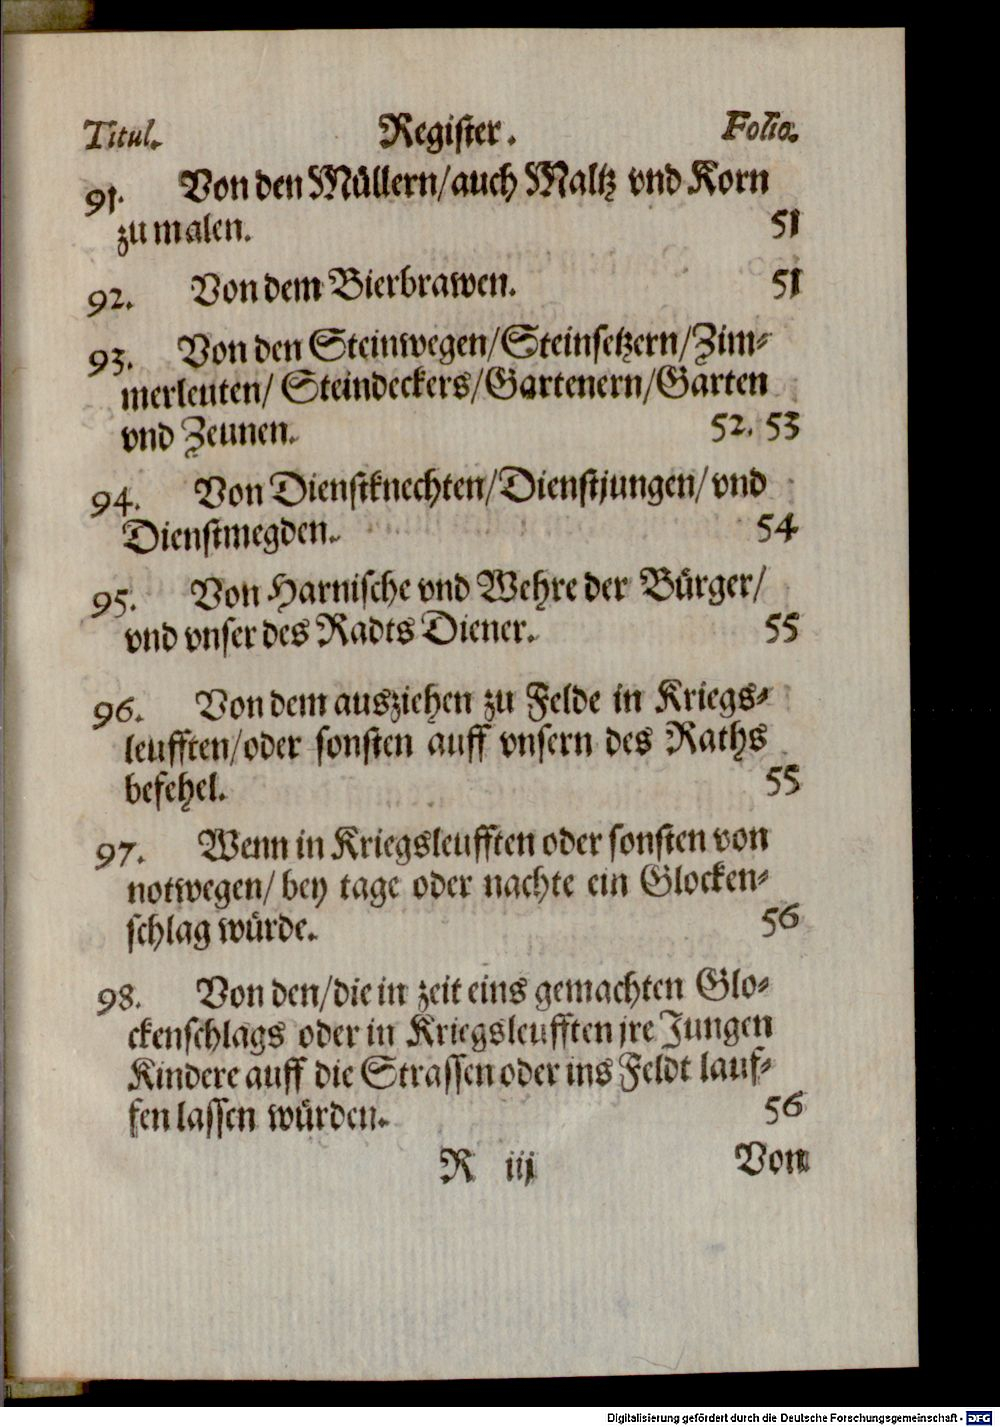 Titul. Register. Folio.
91. Von den Müllern/auch Maltz vnd Korn
zu malen. 51
92. Von dem Bierbrawen. 51
93. Von den Steinwegen/Steinsetzern/Zim-
merleuten/ Steindeckers/Gartenern/Garten
vnd Zeunen. 52. 53
94. Von Dienstknechten/Dienstjungen/ vnd
Dienstmegden. 54
95. Von Harnische vnd Wehre der Bürger/
vnd vnser des Radts Diener. 55
96. Von dem ausziehen zu Felde in Kriegs-
leufften/oder sonsten auff vnsern des Raths
befehel. 55
97. Wenn in Kriegsleufften oder sonsten von
notwegen/ bey tage oder nachte ein Glocken-
schlag würde. 56
98. Von den/die in zeit eins gemachten Glo-
ckenschlags oder in Kriegsleufften jre Jungen
Kindere auff die Strassen oder ins Feldt lauf-
fen lassen würden. 56
R iij Von
Digitalisierung gefördert durch die Deutsche Forschungsgemeinschaft - DFG